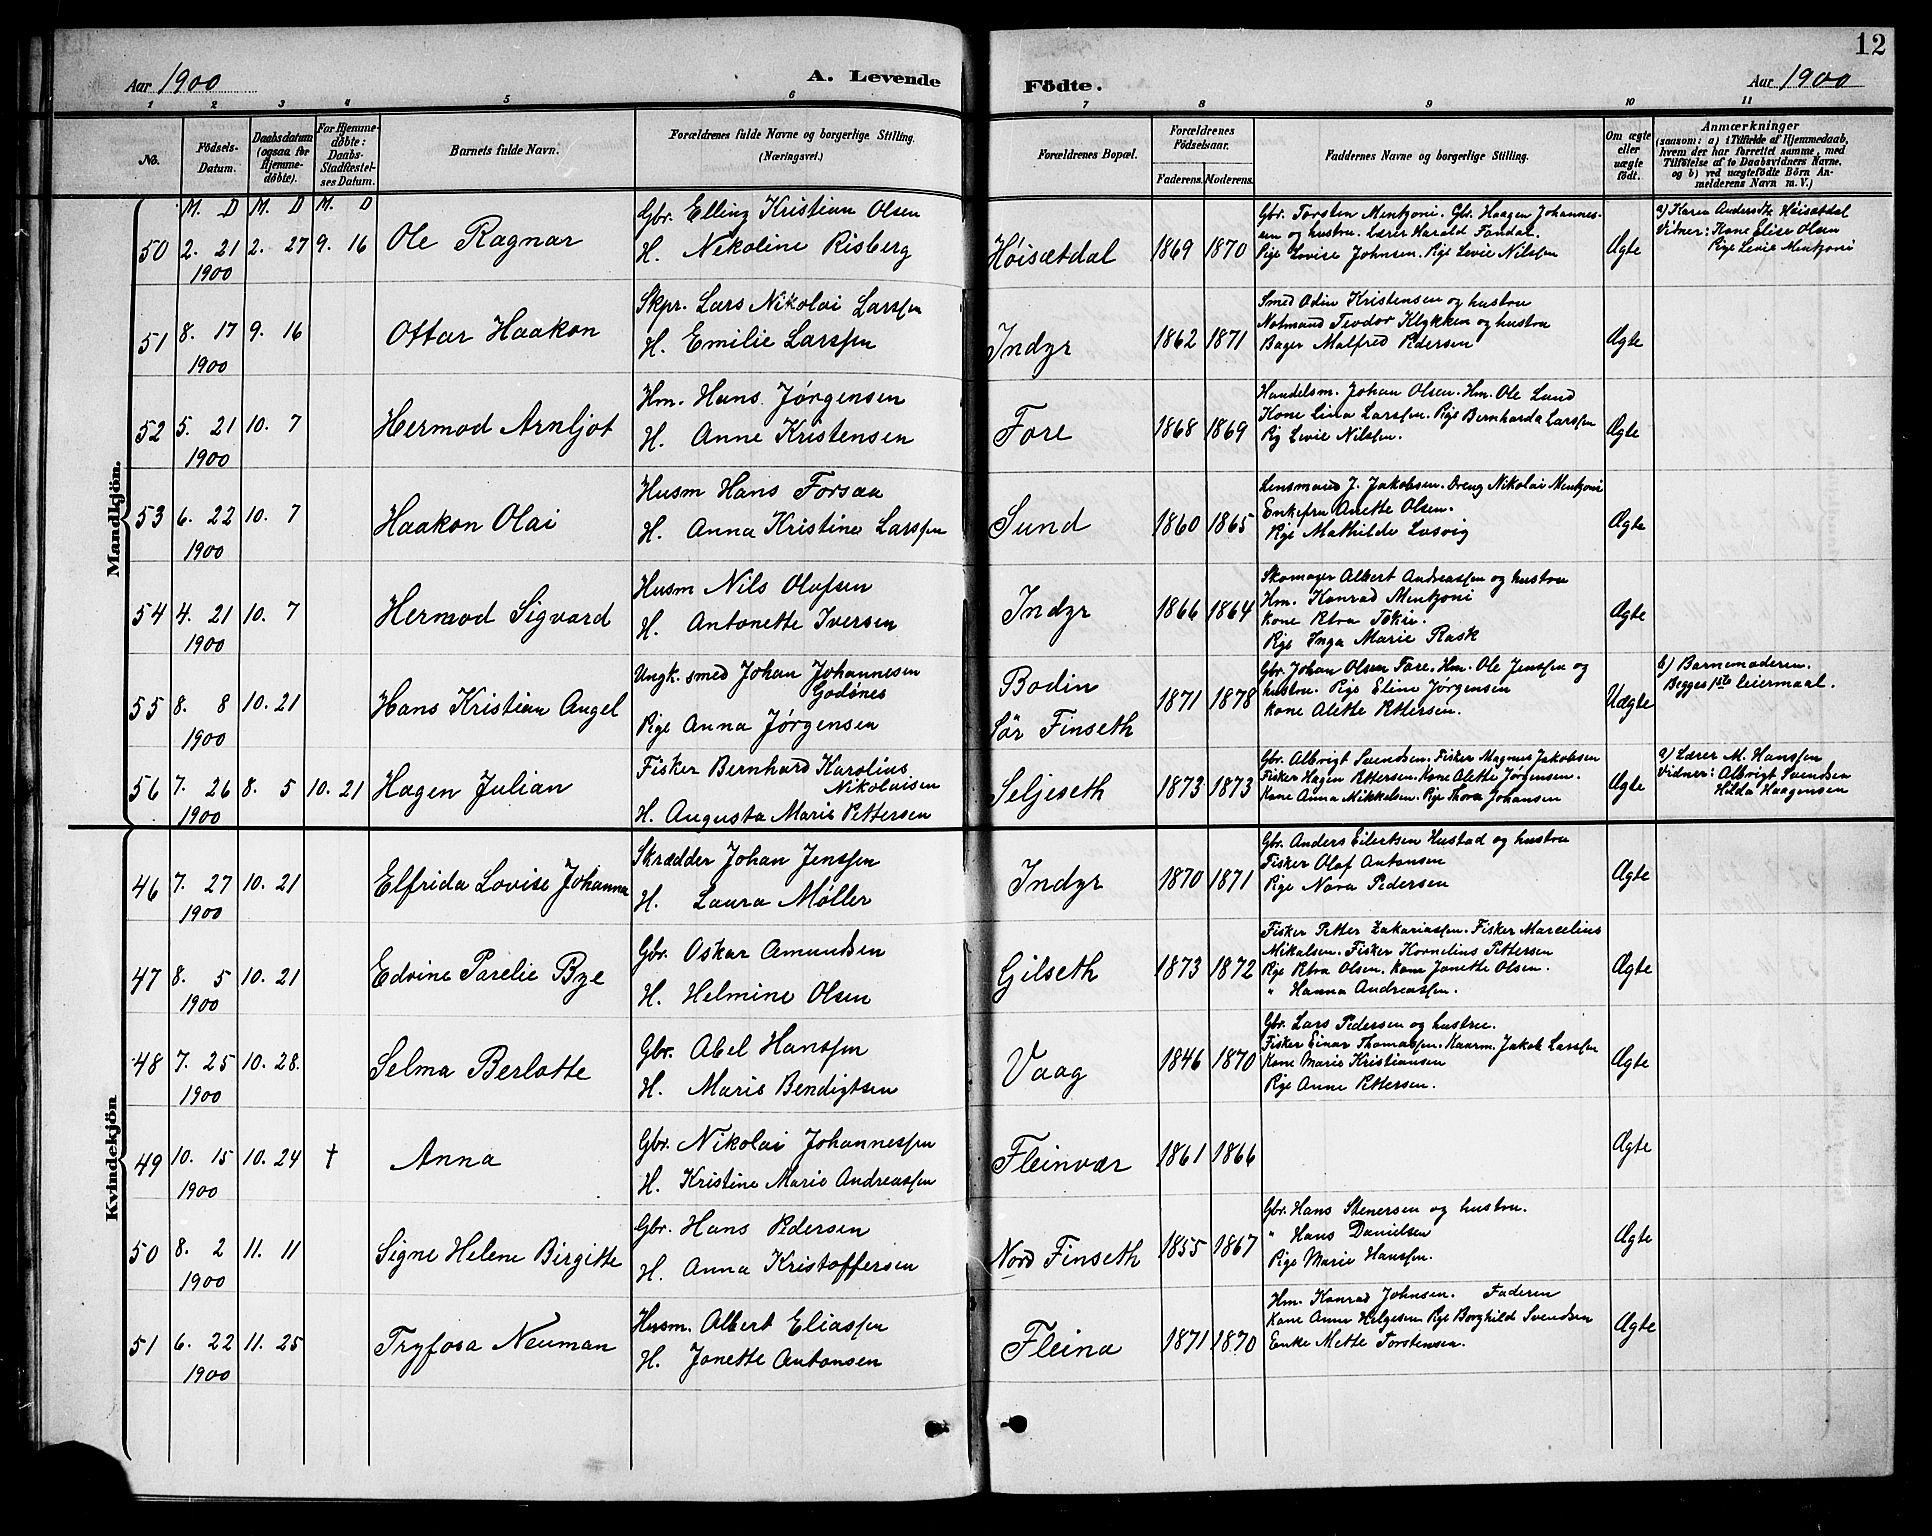 12
Aar 1900
A. Levende
Födte.
Aar 1900
1 2 3 4 5 6 7 8 9 10 11
No.
Födsels-
Datum.
Daabsdatum
(ogsaa for
Hjemme-
døbte).
For Hjemme-
døbte:
Daabs-
Stadfæstel-
ses Datum.
Barnets fulde Navn.
Forældrenes fulde Navne og borgerlige Stilling.
(Næringsvei.)
Forældrenes Bopæl.
Forældrenes
Födselsaar.
Faderens. Moderens.
Faddernes Navne og borgerlige Stilling.
Om ægte
eller
uægte
födt.
Anmærkninger
(saasom: a) i Tilfælde af Hjemmedaab,
hvem der har forrettet samme, med
Tilföielse af to Daabsvidners Navne,
og b) ved uægtefödte Börn An-
melderens Navn m. V.)
Mandkjön.
M. D M. D M. D
50 2. 21 2. 27 9. 16
1900
Ole Ragnar
Gbr. Elling Kristian Olsen
H. Nikoline Risberg
Höisætdal
1869 1870
Gbr. Torsten Mentzoni. Gbr. Haagen Johannes-
sen og hustru. Lærer Harald Fondal.
Pige Lovise Johnsen. Pige Levie Nilssen
Ægte
a) Karen Andersdtr. Höisætdal
Vidner: Kone Elise Olsen
Pige Levie Mentzoni
51 8. 17 9. 16
1900
Ottar Haakon
Skpr. Lars Nikolai Larssen
H. Emilie Larssen
Indyr
1862 1871
Smed Odin Kristensen og hustru
Notmand Teodor Klykken og hustru
Bager Malfred Pedersen
Ægte
52 5. 21 10. 7
1900
Hermod Arnljot
Hm. Hans Jørgensen
H. Anne Kristensen
Fore
1868 1869
Handelsm. Johan Olsen. Hm. Ole Lund
Kone Lina Larssen. Pige Bernharda Larssen
Pig Levie Nilssen.
Ægte
53 6. 22 10. 7
1900
Haakon Olai
Husm Hans Forsaa
H. Anna Kristine Larssen
Sund
1860 1865
Lensmand J. Jakobsen. Dreng Nikolai Mentzoni
Enkefru Anette Olsen.
Pige Mathilde Losvig
Ægte
54 4. 21 10. 7
1900
Hermod Sigvard
Husm Nils Olafsen
H. Antonette Iversen
Indyr
1866 1864
Skomager Albert Andreassen og hustru
Hm. Konrad Mentzoni
Kone Petra
Pige Inga Marie Rask
Ægte
55 8. 8 10. 21
1900
Hans Kristian Angel
Ungk. smed Johan Johannesen
Godönes
Pige Anna Jørgensen
Bodin
Sör Finseth
1871 1878
Gbr. Johan Olsen Fore. Hm. Ole Jenssen og
hustru. Pige Eline Jørgensen
Kone Alette Pettersen.
Uægte
b) Barnemoderen.
Begges 1ste leiermaal.
56 7. 26 8. 5 10. 21
1900
Hagen Julian
Fisker Bernhard Karolius
Nikolaisen
H. Augusta Marie Pettersen
Seljeseth
1873 1873
Gbr. Albrigt Svendsen. Fisker Magnus Jakobsen
Fisker Hagen Pettersen. Kone Alette Jørgensen.
Kone Anna Mikkelsen. Pige Thora Johansen
Ægte
a) Lærer M. Hanssen
Vidner: Albrigt Svendsen
Hilda Haagensen
Kvindekjön
46 7. 27 10. 21
1900
Elfrida Lovise Johanna
Skrædder Johan Jenssen
H. Laura Møller
Indyr
1870 1871
Gbr. Anders Eilertsen Hustad og hustru
Fisker Olaf Antonsen
Pige Nora Pedersen
Ægte
47 8. 5 10. 21
1900
Edvine Parelie Bye
Gbr. Oskar Amundsen
H. Helmine Olsen
Gilseth
1873 1872
Fisker Petter Zakariassen. Fisker Marcelius
Mikalsen. Fisker Kornelius Pettersen
Pige Petra Olsen. Kone Janette Olsen.
" Hanna Andreassen.
Ægte
48 7. 25 10. 28.
1900
Selma Berlotte
Gbr. Abel Hanssen
H. Maris Bendigtsen
Vaag
1846 1870
Gbr. Lars Pedersen og hustru.
Fisker Einar Thomassen. Kaarm. Jakob Larssen
Kone Marie Kristiansen
Pige Anne Pettersen.
Ægte
49 10. 15 10. 24 †
1900
Anna
Gbr. Nikolai Johannessen
H. Kristine Marie Andreassen
Fleinvær
1861 1866
Ægte
50 8. 2 11. 11
1900
Signe Helene Birgitte
Gbr. Hans Pedersen
H. Anna Kristoffersen
Nord Finseth
1855 1867
Gbr. Hans Stenersen og hustru.
" Hans Danielsen
Pige Marie Hanssen.
Ægte
51 6. 22 11. 25
1900
Tryfosa Neuman
Husm. Albert Eliassen
H. Janette Antonsen
Fleina
1871 1870
Hm. Konrad Johnsen. Faderen
Kone Anne Helgesen Pige Borghild Svendsen
Enke Mette Torstensen.
Ægte